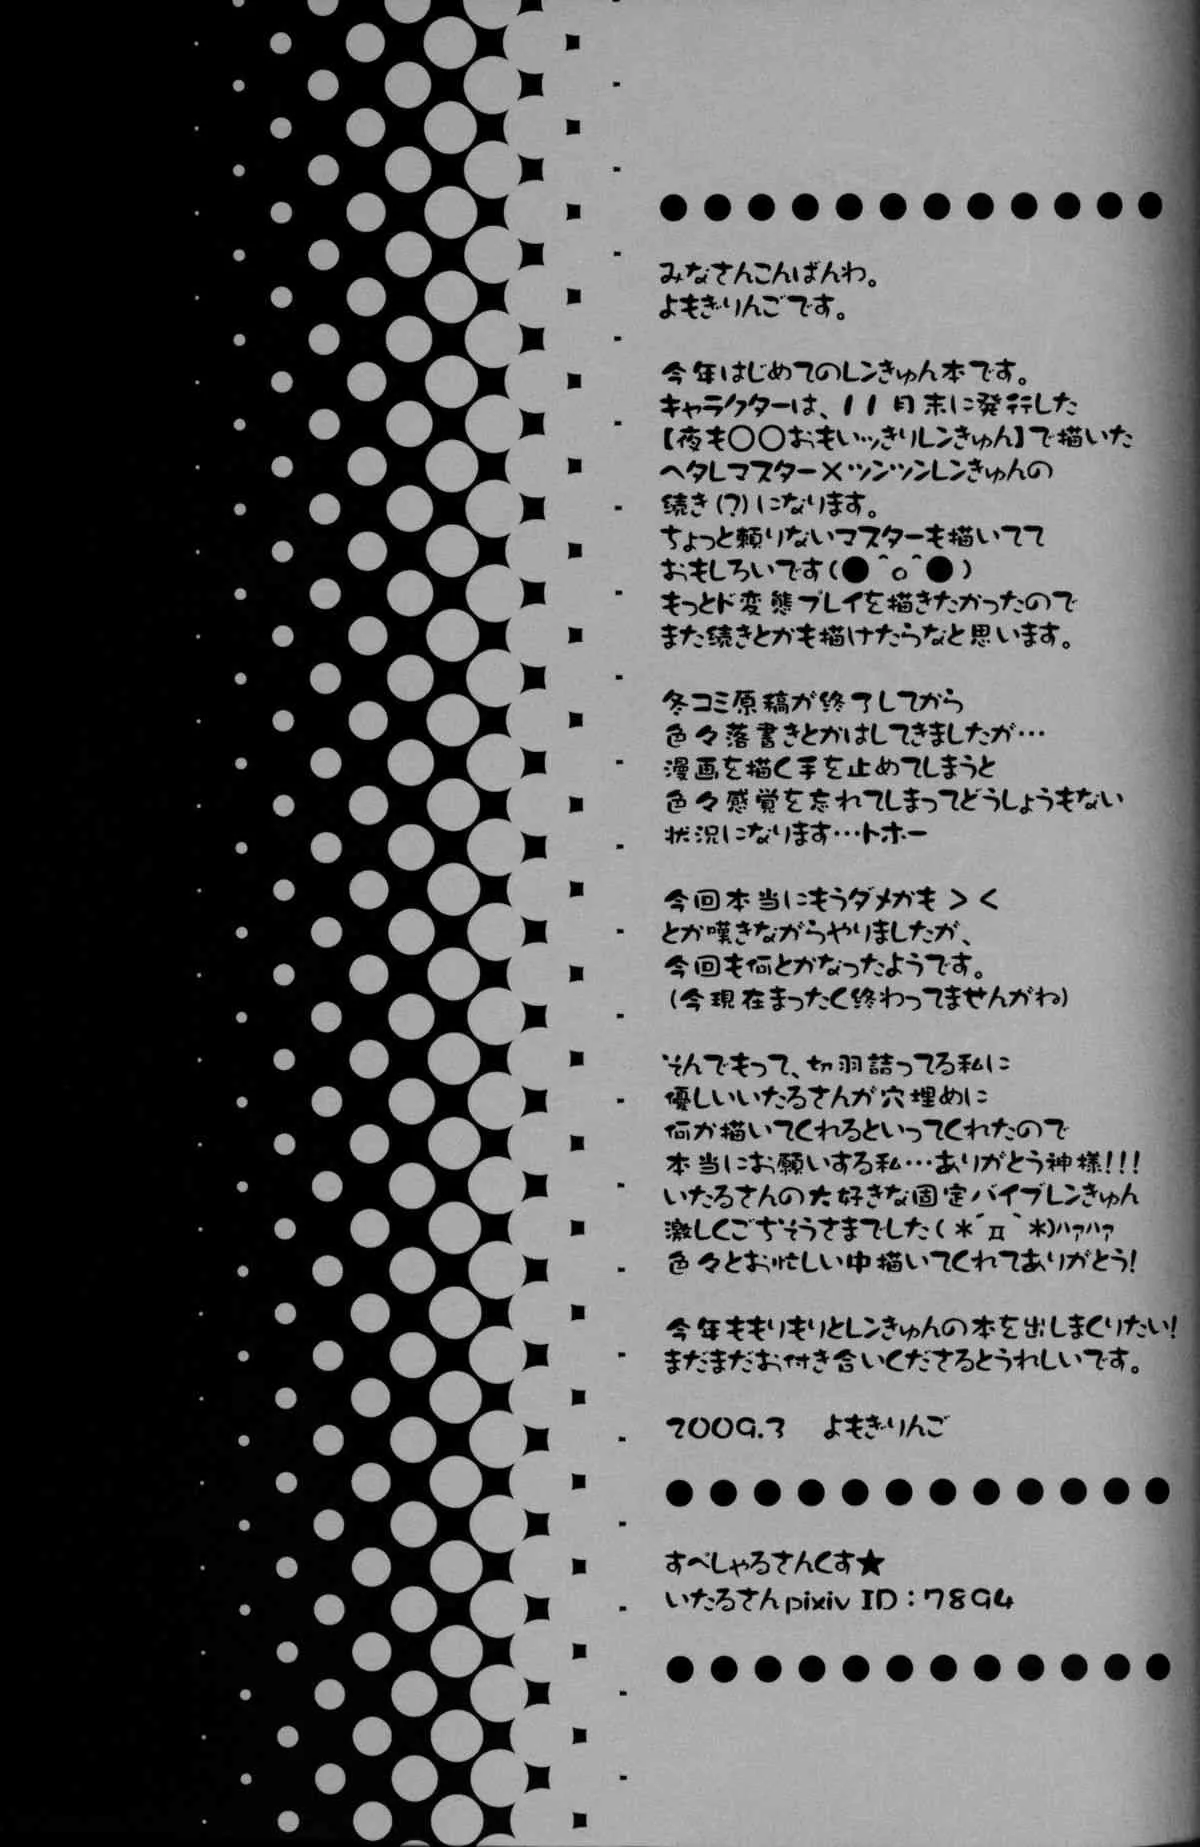 みなさんこんばんわ。
よもぎりんごです。
今年はじめてのレンきゅん本です。
キャラクターは、11月末に発行した
【夜も○○おもいッきりレンきゅん】で描いた
ヘタレマスター×ツンツンレンきゅんの
続き(?)になります。
ちょっと頼りないマスターも描いてて
おもしろいです(●＾o＾●)
もっとド変態プレイを描きたかったので
また続きとかも描けたらなと思います。
冬コミ原稿が終了してから
色々落書きとかはしてきましたが…
漫画を描く手を止めてしまうと
色々感覚を忘れてしまってどうしょうもない
状況になります…トホー
今回本当にもうダメかも＞＜
とか嘆きながらやりましたが、
今回も何とかなったようです。
(今現在まったく終わってませんがね)
そんでもって、切羽詰ってる私に
優しいいたるさんが穴埋めに
何か描いてくれるといってくれたので
本当にお願いする私…ありがとう神様!!!
いたるさんの大好きな固定バイブレンきゅん
激しくごちそうさまでした(＊´д｀＊)ﾊｧﾊｧ
色々とお忙しい中描いてくれてありがとう!
今年ももりもりとレンきゅんの本を出しまくりたい!
まだまだお付き合いくださるとうれしいです。
2009.3　よもぎりんご
すぺしゃるさんくす★
いたるさんpixiv ID：7894